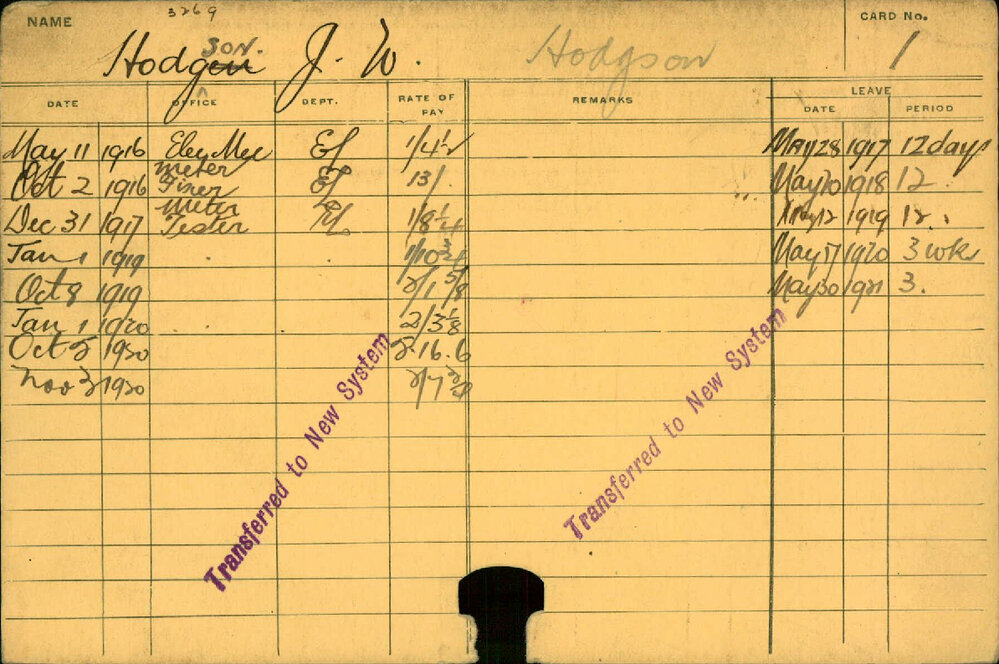 3269
NAME
CARD No.
Hodgen SON. J. W. Hodgson
1
DATE OFFICE DEPT. RATE OF PAY REMARKS LEAVE
DATE PERIOD
May 11 1916 1/4½ May 28 1917 12 days
Oct 2 1916 Meter Fixer 13/. May 20 1918 12
Dec 31 1917 Meter Tester 1/8¼ May 12 1919 12.
Jan 1 1919 1/10¾ May 17 1920 3 wks
Oct 8 1919 2/1⅝ May 30 1921 3.
Jan 1 1920 2/3⅛
Oct 5 1920 2.16.6
Nov 3 1920
Transferred to New System
Transferred to New System